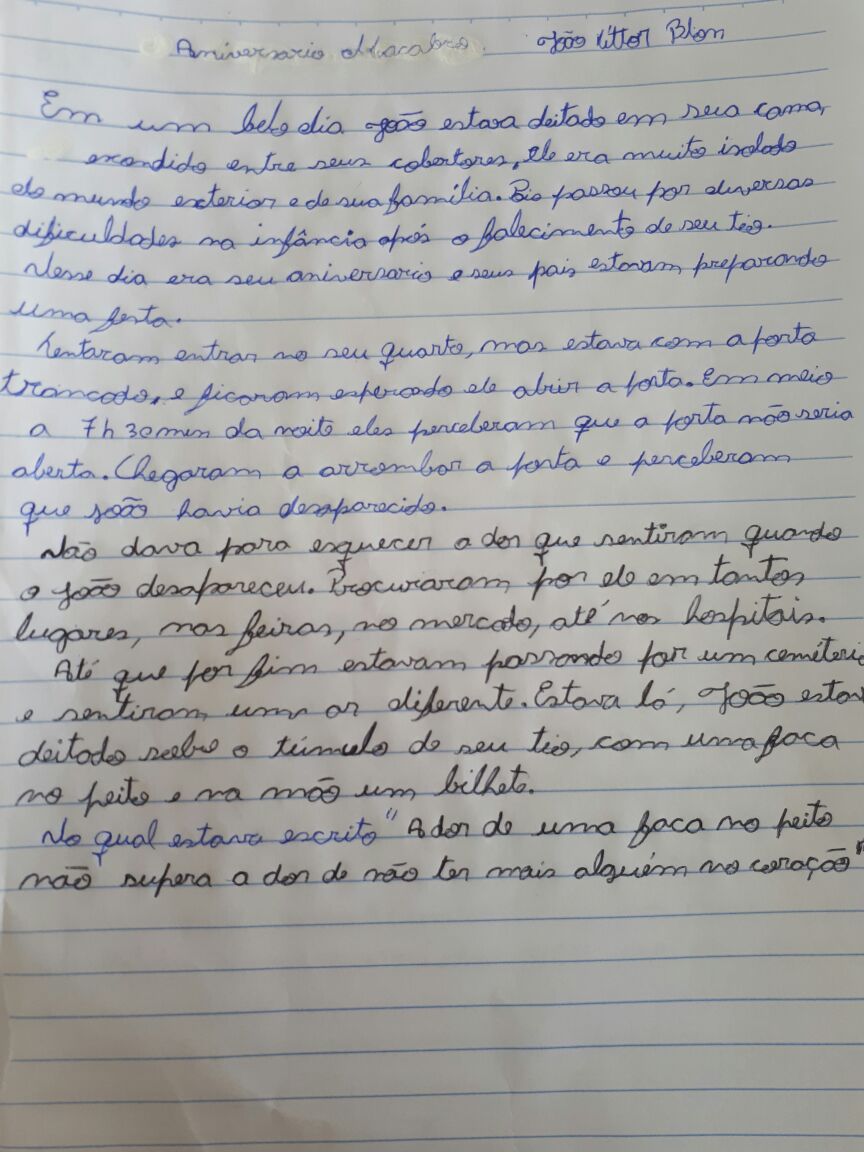 Aniversario Macabro. João Vittor Blon
Em um belo dia João estava deitado em seua cama,
escondido entre seus cobertores, Ele era muito isolado
do mundo exterior e de sua família. Bio passou por diversas
dificuldades na infância após o falecimento de seu tio.
Nesse dia era seu aniversario e seus pais estavam preparando
uma festa.
Tentaram entrar no seu quarto, mas estava com a porta
trancado, e ficaram esperando ele abrir a porta. Em meio
a 7h 30min da noite eles perceberam que a porta não seria
aberta. Chegaram a arrombar a porta e perceberam
que João havia desaparecido.
Não dava para esquecer a dor que sentiram quando
o João desapareceu. Procuraram por ele em tantos
lugares, nas feiras, no mercado, até nos hospitais.
Até que por fim estavam passando por um cemitério
e sentiram um ar diferente. Estava lá, João estav
deitado sobre o túmulo de seu tio, com uma faca
no peito e na mão um bilhete.
No qual estava escrito "A dor de uma faca no peito
não supera a dor de não ter mais alguém no coração"